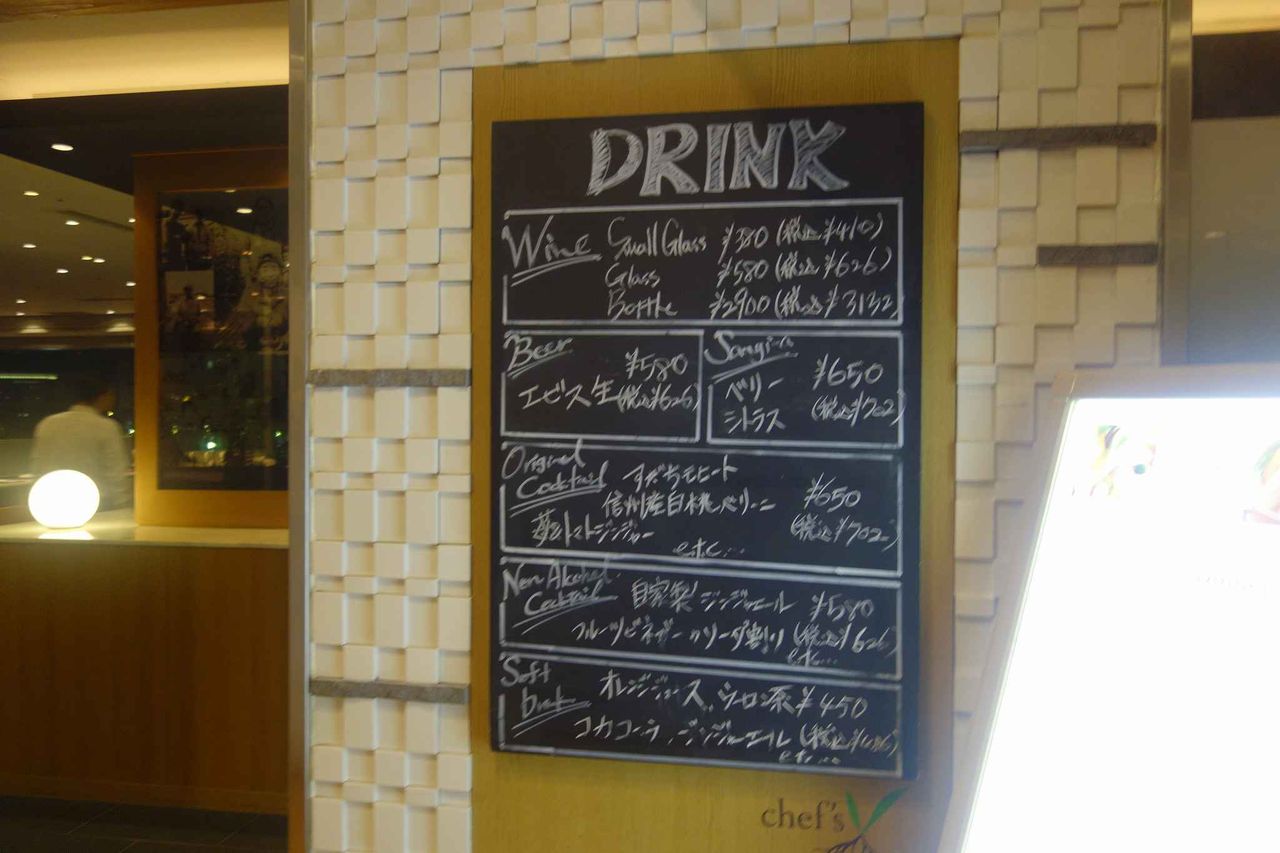 DRINK
Wine Small Glass ¥380 (税込¥410)
Glass ¥580 (税込¥626)
Bottle ¥2900 (税込¥3132)
Beer ¥580
エビス生 (税込¥626)
Sangria
ベリー ¥650
シトラス (税込¥702)
Original
Cocktail すだちモヒート
信州産白桃ベリーニ ¥650
トマトジンジャー (税込¥702)
etc...
Non Alcohol
Cocktail 自家製ジンジャエール ¥580
フルーツビネガーのソーダ割り (税込¥626)
etc...
Soft オレンジジュース、ウーロン茶 ¥450
Drink コカコーラ、ジンジャーエール (税込¥486)
etc...
chef's V